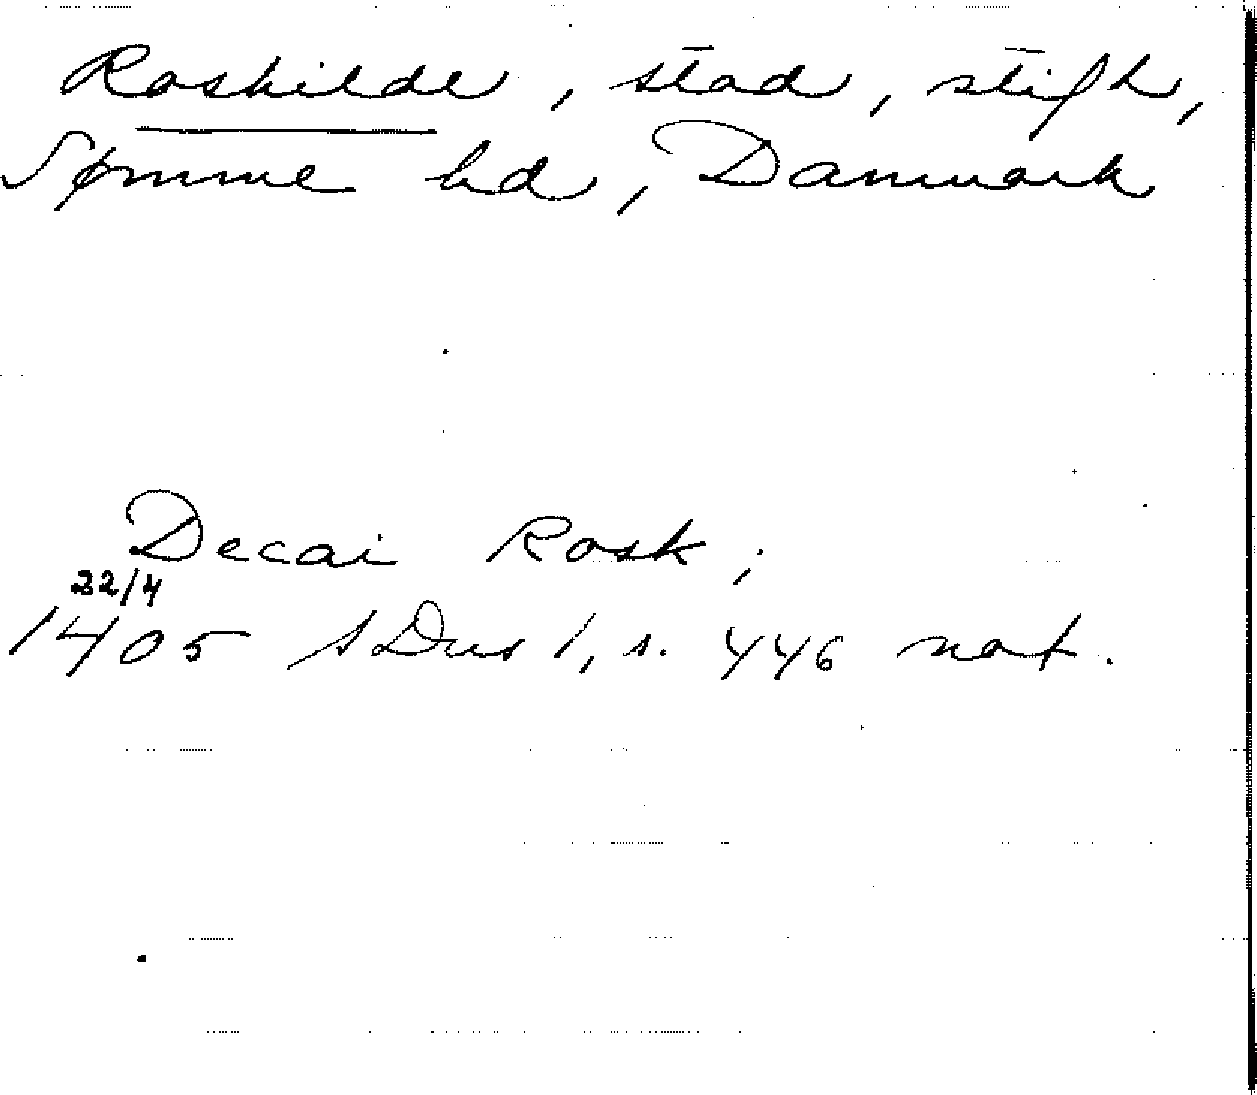 Roskilde, stad, stifh,
Sømme hd, Danmark
Decai Rosk;
22/4
1405 SDns 1, s. 446 not.